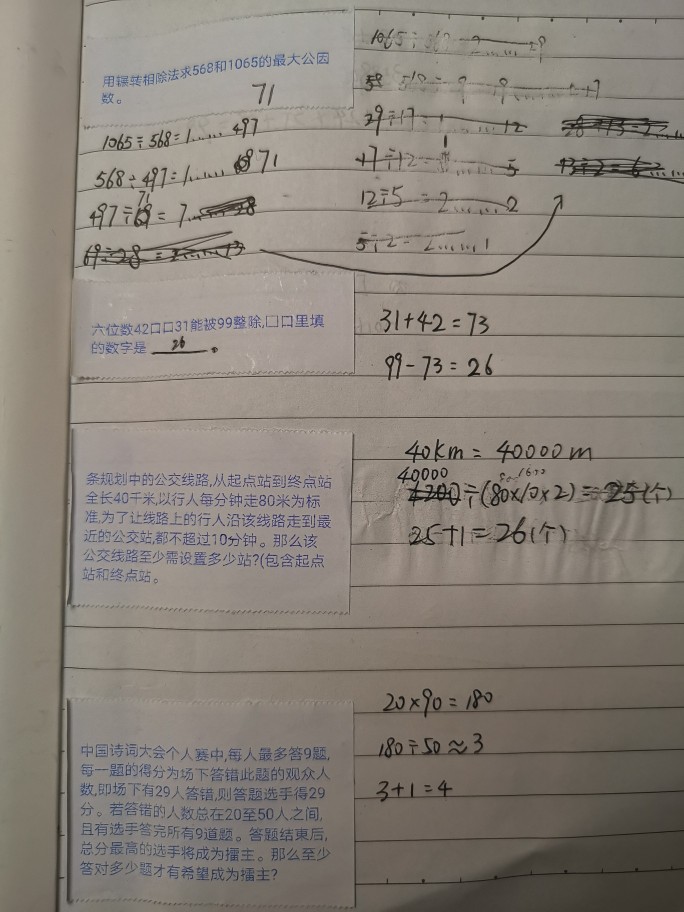 用辗转相除法求568和1065的最大公因
数。
71
1065÷568=1......497
568÷497=1......71
497÷71=7
29÷17=1......12
17÷12=1......5
12÷5=2......2
5÷2=2......1
六位数42口口31能被99整除,口口里填
的数字是 26 。
31+42=73
99-73=26
条规划中的公交线路,从起点站到终点站
全长40千米,以行人每分钟走80米为标
准,为了让线路上的行人沿该线路走到最
近的公交站,都不超过10分钟。那么该
公交线路至少需设置多少站?(包含起点
站和终点站。
40km=40000m
40000÷(80×10×2)=25(个)
25+1=26(个)
中国诗词大会个人赛中,每人最多答9题,
每一题的得分为场下答错此题的观众人
数,即场下有29人答错,则答题选手得29
分。若答错的人数总在20至50人之间,
且有选手答完所有9道题。答题结束后,
总分最高的选手将成为擂主。那么至少
答对多少题才有希望成为擂主?
20×90=180
180÷50≈3
3+1=4